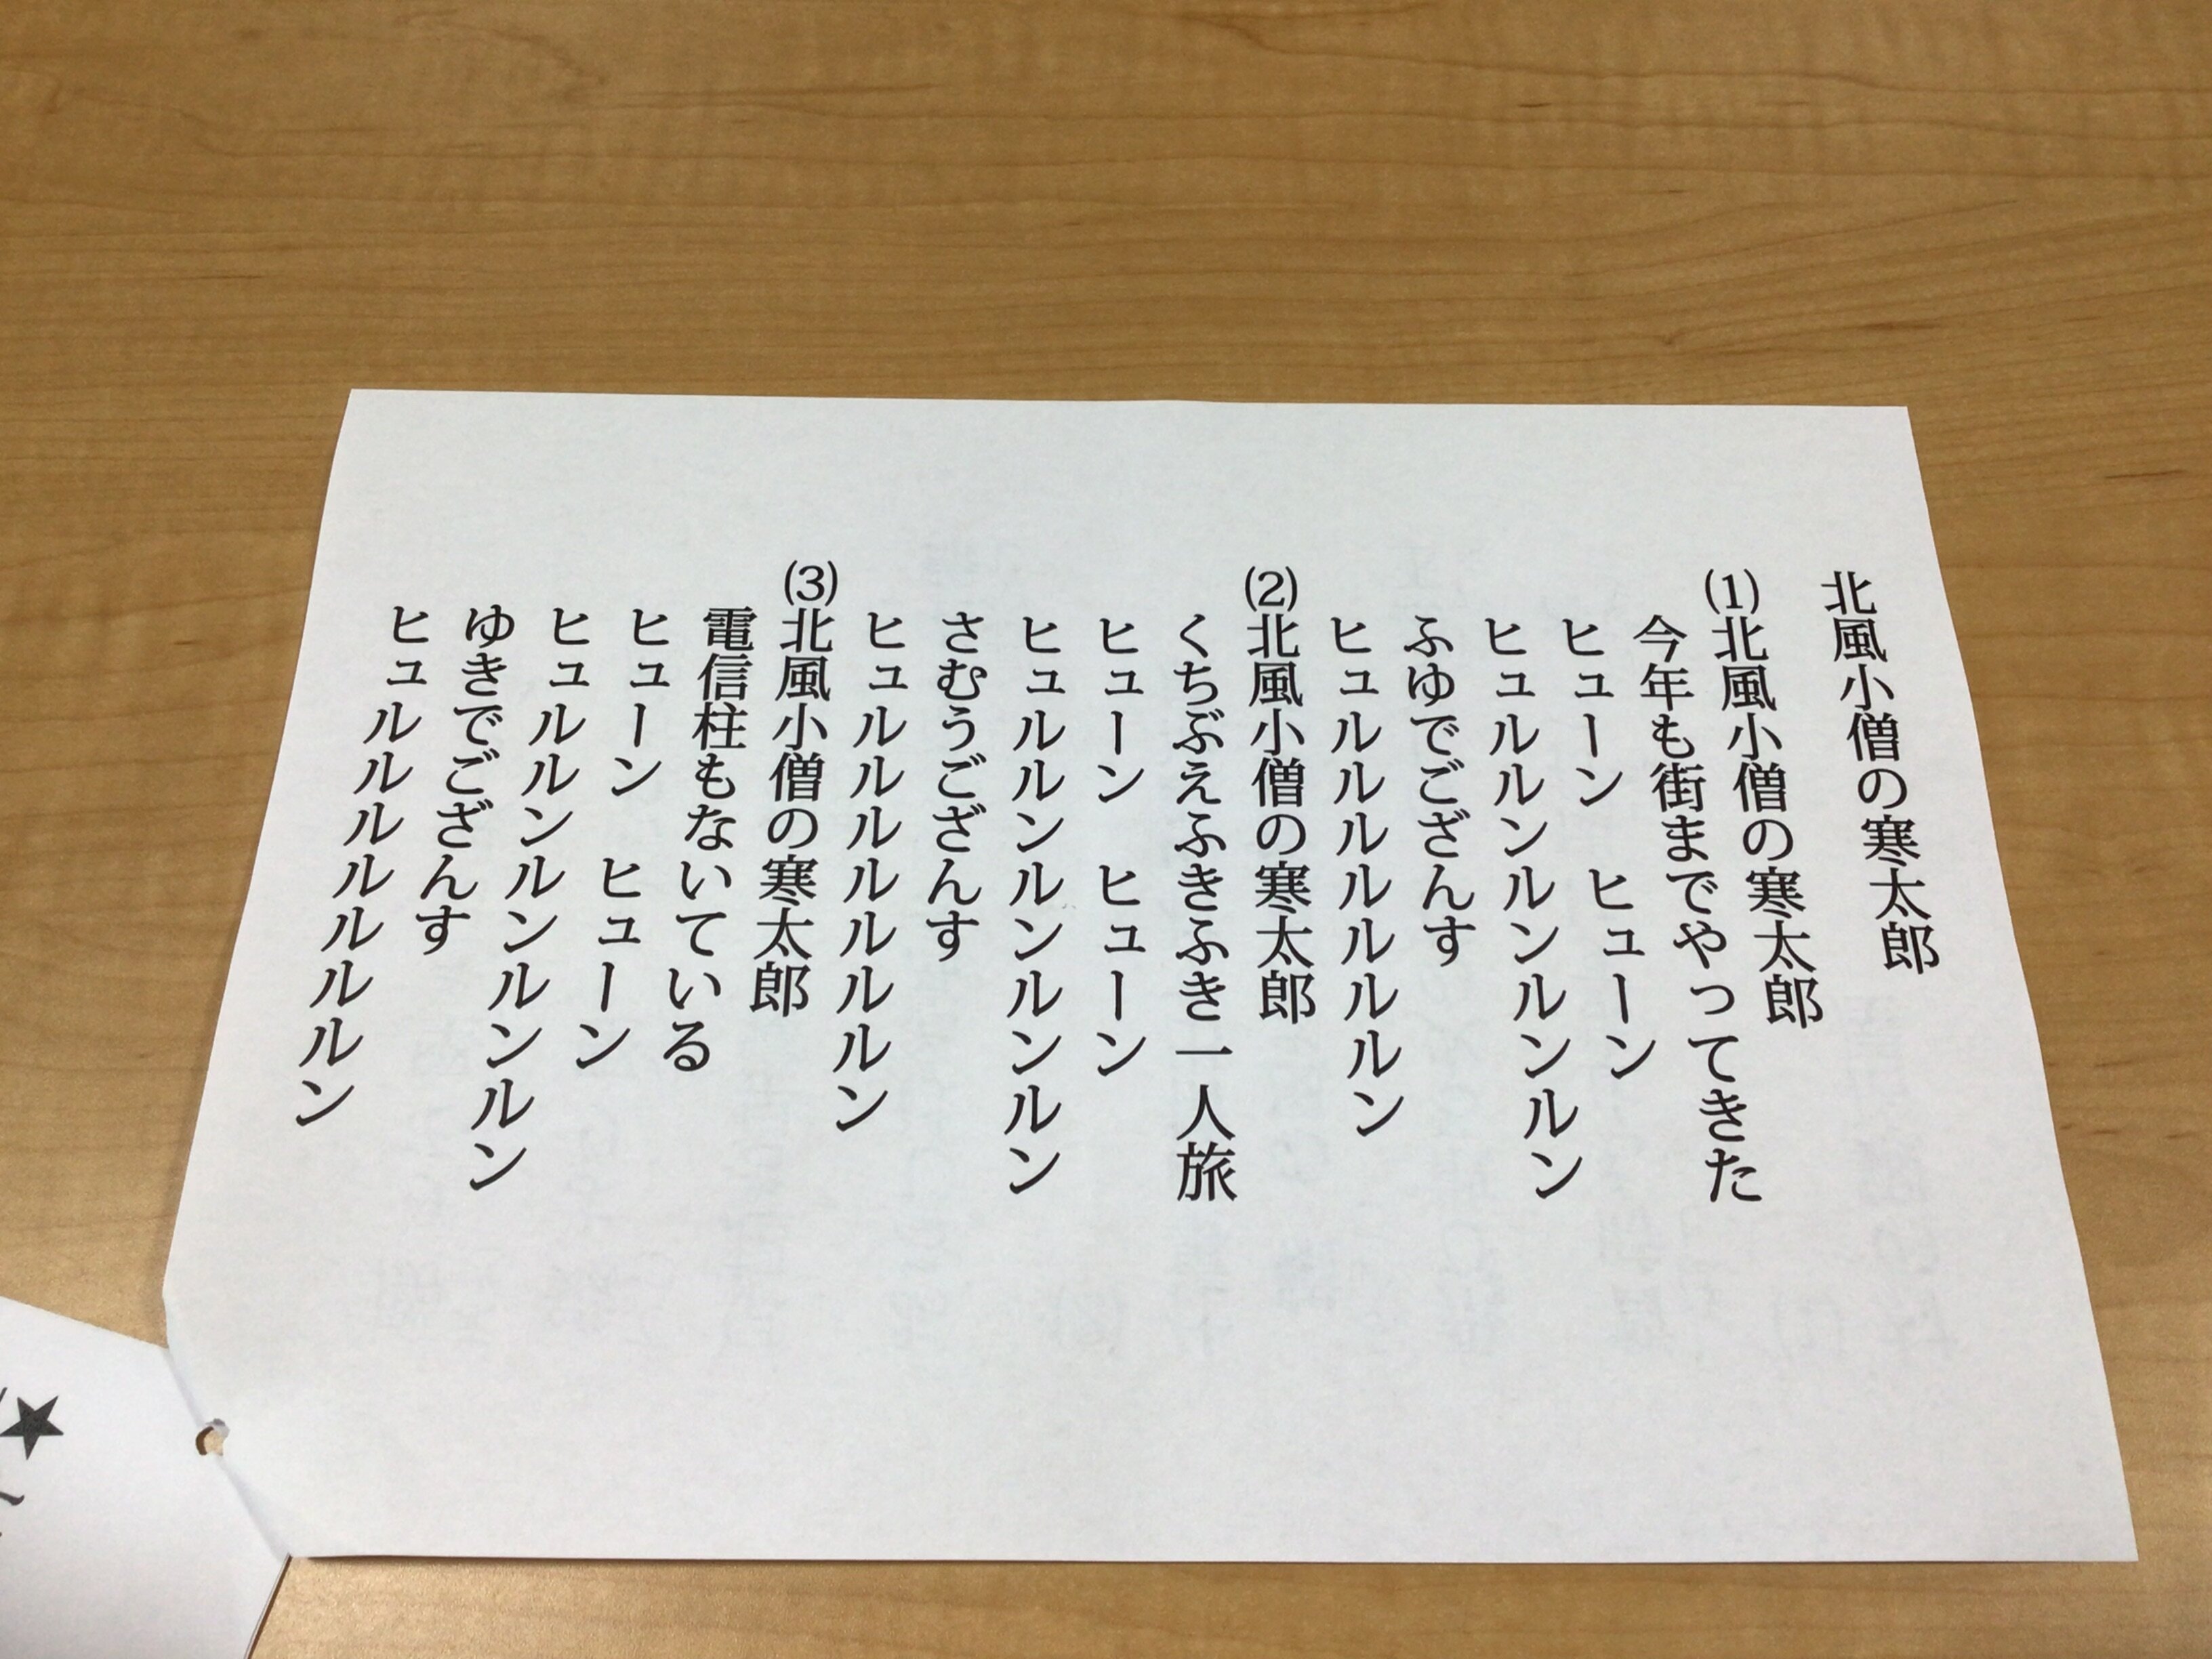 北風小僧の寒太郎
(1)北風小僧の寒太郎
今年も街までやってきた
ヒューン　ヒューン
ヒュルルンルンルンルン
ふゆでござんす
ヒュルルルルルルン
(2)北風小僧の寒太郎
くちぶえふきふき一人旅
ヒューン　ヒューン
ヒュルルンルンルンルン
さむうござんす
ヒュルルルルルルルン
(3)北風小僧の寒太郎
電信柱もないている
ヒューン　ヒューン
ヒュルルンルンルンルン
ゆきでござんす
ヒュルルルルルルルン
★